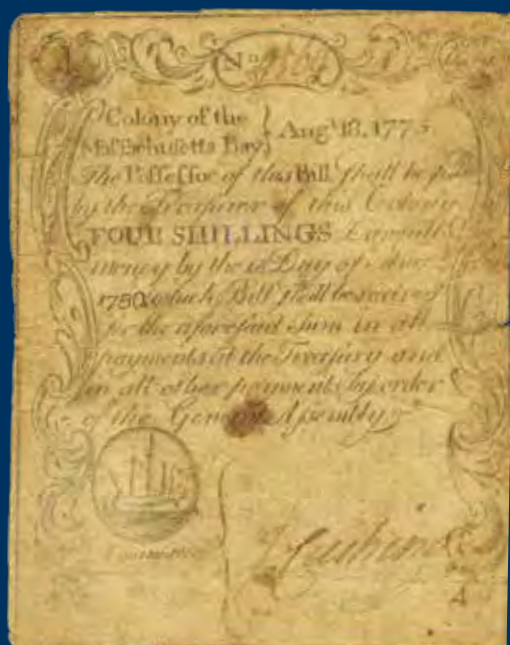 No
Colony of the
Massachusetts Bay } Augt. 18. 1775
The Possessor of this Bill shall be
by the Treasurer of this Colony
FOUR SHILLINGS Lawfull
money by the Day of
1780 which Bill shall be received
for the aforesaid sum in all
payments at the Treasury and
in all other payments by order
of the General Assembly
Committee
Cushing
4